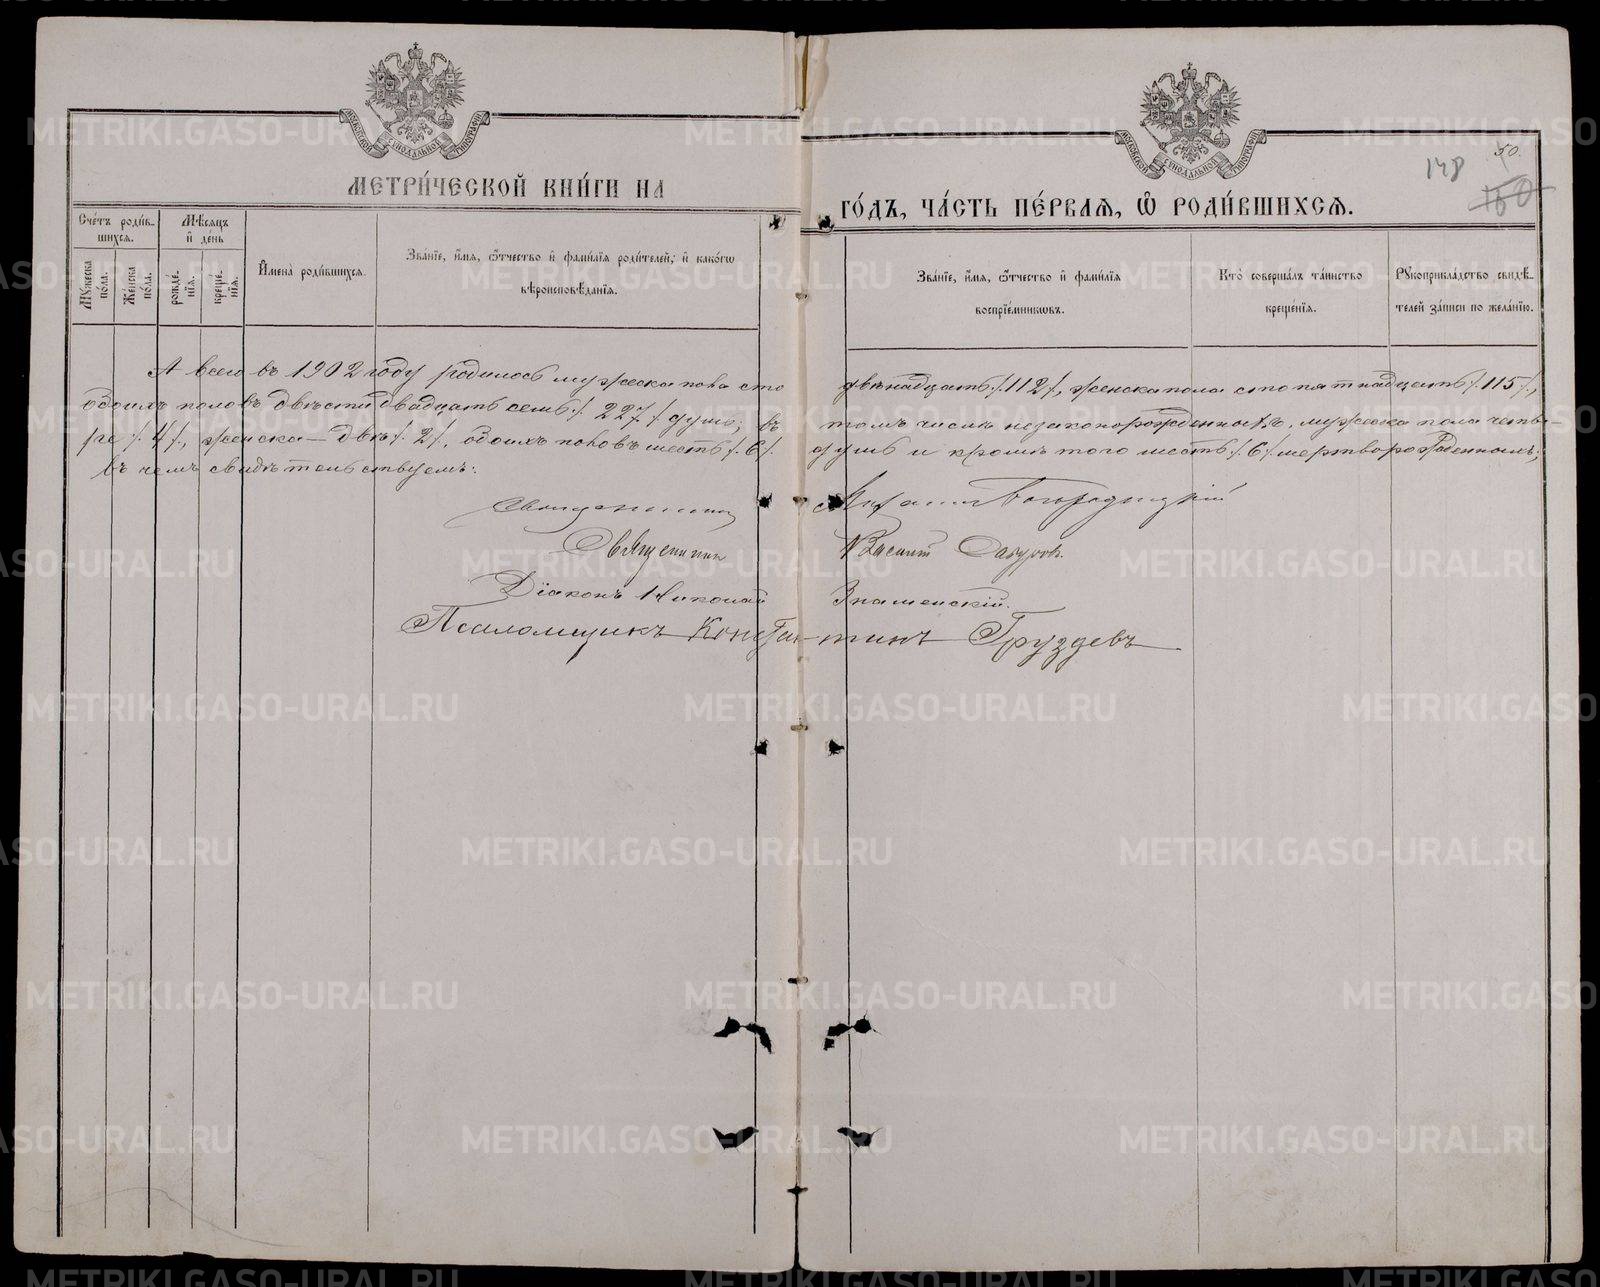 МОСКОВСКОЙ СѴНОДАЛЬНОЙ ТИПОГРАФІИ
МОСКОВСКОЙ СѴНОДАЛЬНОЙ ТИПОГРАФІИ
148
50.
150
МЕТРИ́ЧЕСКОЙ КНИ́ГИ НА
ГО́ДЪ, ЧА́СТЬ ПЕ́РВАѦ, Ѽ РОДИ́ВШИХСѦ.
Сче́тъ роди́в-
шихсѧ.
Мꙋ́жеска
по́ла.
Же́нска
по́ла.
Мѣ́сѧцъ
и҆ де́нь
рожде́-
нїѧ.
креще́-
нїѧ.
И҆мена̀ роди́вшихсѧ.
Зва́нїе, и҆́мѧ, ѻ҆́тчество и҆ фами́лїѧ роди́телей, и҆ како́гѡ
вѣроисповѣ́данїѧ.
Зва́нїе, и҆́мѧ, ѻ҆́тчество и҆ фами́лїѧ
воспрїе́мникѡвъ.
Кто̀ соверша́лъ та́инство
креще́нїѧ.
Рꙋкоприкла́дство свидѣ́-
телей за́писи по жела́нїю.
А всего въ 1902 году родилось мужеска пола сто двѣнадцать /.112/., женска пола сто пятнадцать /.115/.,
обоихъ половъ двѣсти двадцать семь /.227/. душъ; въ томъ числѣ незаконорожденныхъ, мужеска пола четы-
ре /.4/., женска — двѣ /.2/., обоихъ половъ шесть /.6/. душъ и кромѣ того шесть /.6/. мертворожденныхъ;
въ чемъ свидѣтельствуемъ:
Священникъ Михаилъ Богородицкій
Священникъ Василій
Діаконъ Николай Знаменскій.
Псаломщикъ Констан-тинъ Груздевъ
METRIKI.GASO-URAL.RU